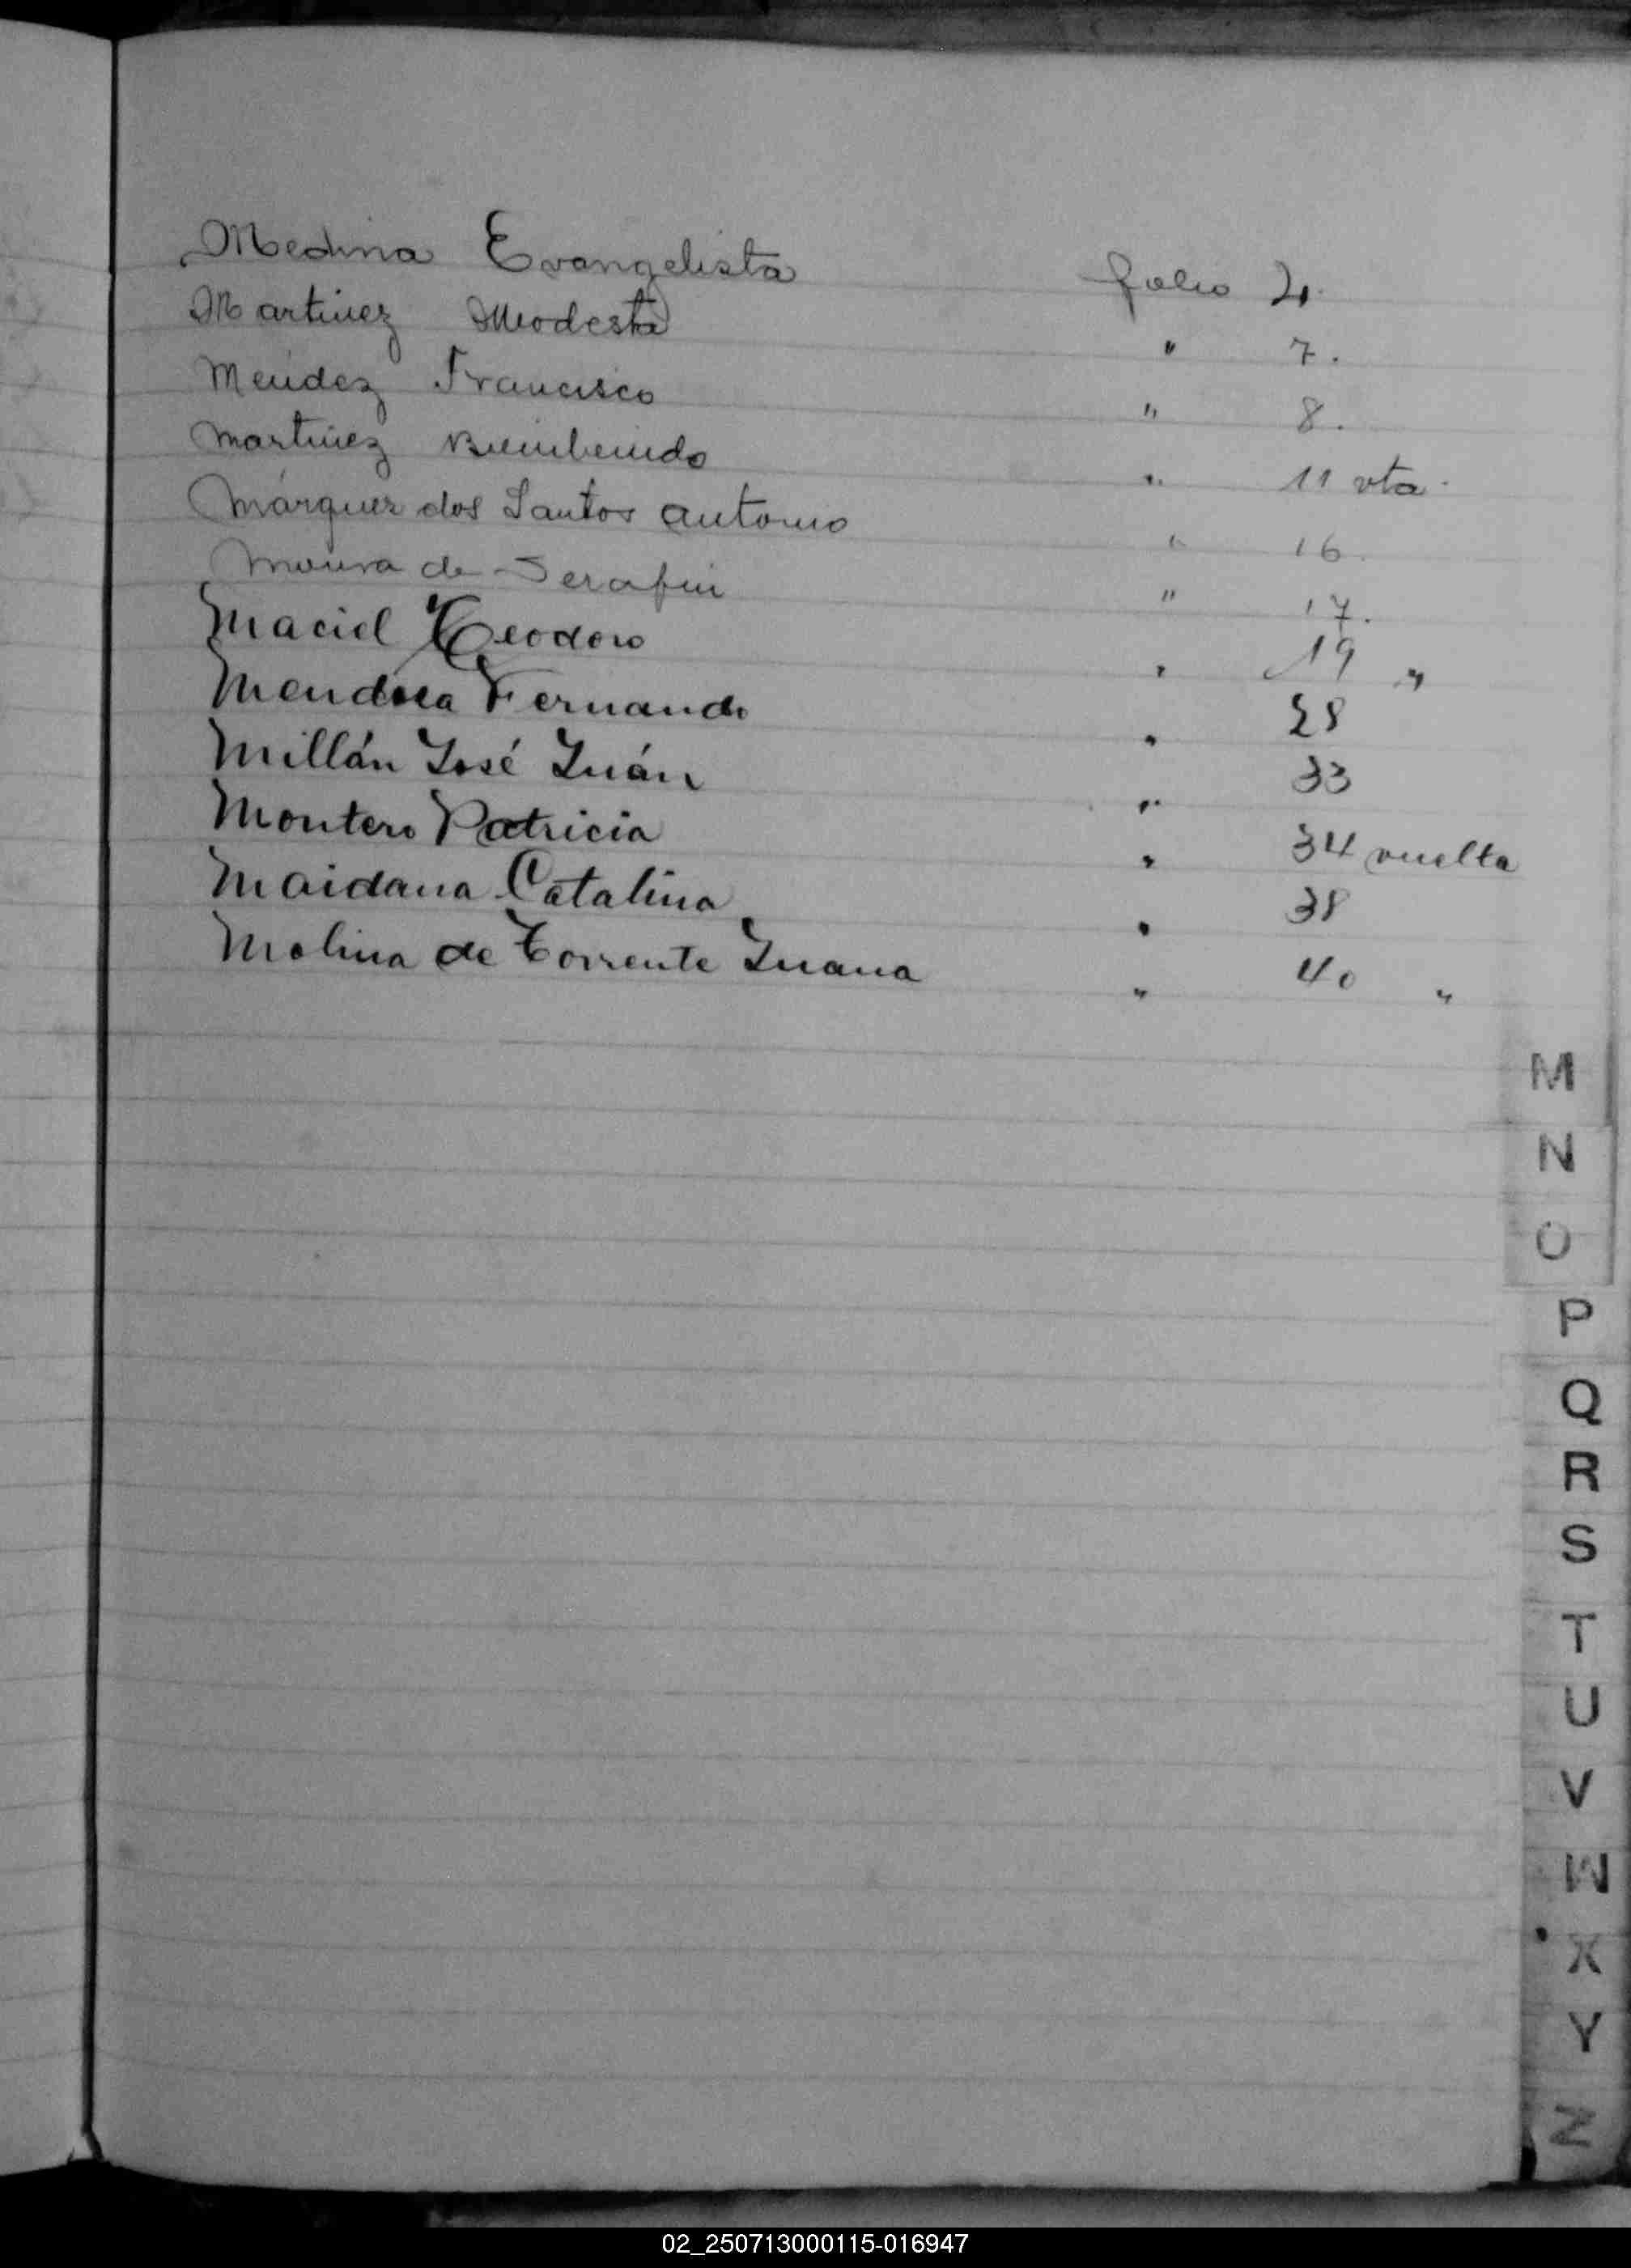 Medina Evangelista folio 4.
Martinez Modesta " 7.
Mendez Francisco " 8.
Martinez Buenbenido " 11 vta.
Márquez dos Santos Antonio " 16.
Moura de Serafin " 17.
Maciel Teodoro " 19 "
Mendoza Fernando " 28
Millán José Juán " 33
Montero Patricia " 34 vuelta
Maidana Catalina " 38
Molina de Torrente Juana " 40 "
M
N
O
P
Q
R
S
T
U
V
W
X
Y
Z
02_250713000115-016947